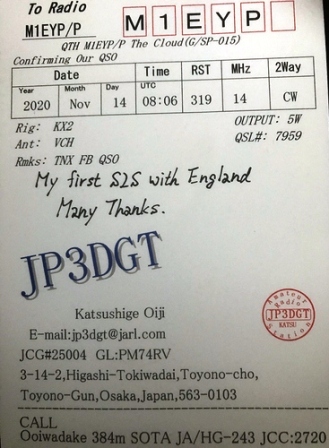 To Radio
M1EYP/P
M1EYP
QTH M1EYP/P The Cloud(G/SP-015)
Confirming Our QSO
Date Time RST MHz 2Way
Year Month Day UTC
2020 Nov 14 08:06 319 14 CW
Rig: KX2 OUTPUT: 5W
Ant: VCH QSL#: 7959
Rmks: TNX FB QSO
My first S2S with England
Many Thanks.
JP3DGT
Amateur Radio
JP3DGT
KATSU
Station
Katsushige Oiji
E-mail:jp3dgt@jarl.com
JCG#25004 GL:PM74RV
3-14-2,Higashi-Tokiwadai,Toyono-cho,
Toyono-Gun,Osaka,Japan,563-0103
CALL
Ooiwadake 384m SOTA JA/HG-243 JCC:2720